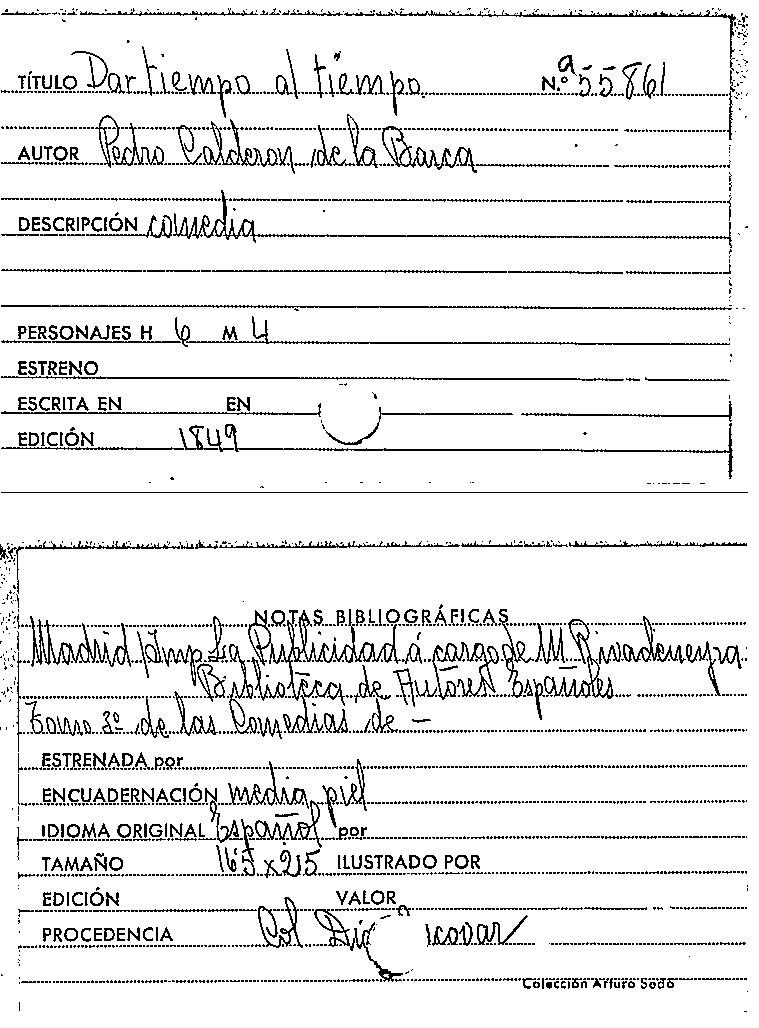 TÍTULO Dar tiempo al tiempo N.º a 55861
AUTOR Pedro Calderon de la Barca
DESCRIPCIÓN comedia
PERSONAJES H 6 M 4
ESTRENO
ESCRITA EN EN
EDICIÓN 1849
NOTAS BIBLIOGRÁFICAS
Madrid Imp La Publicidad á cargo de M Rivadeneyra
Biblioteca de Autores Españoles
Tomo 3º de las Comedias de —
ESTRENADA por
ENCUADERNACIÓN media piel
IDIOMA ORIGINAL Español por
TAMAÑO 165 x 215 ILUSTRADO POR
EDICIÓN VALOR
PROCEDENCIA Col
Colección Arturo Sedó